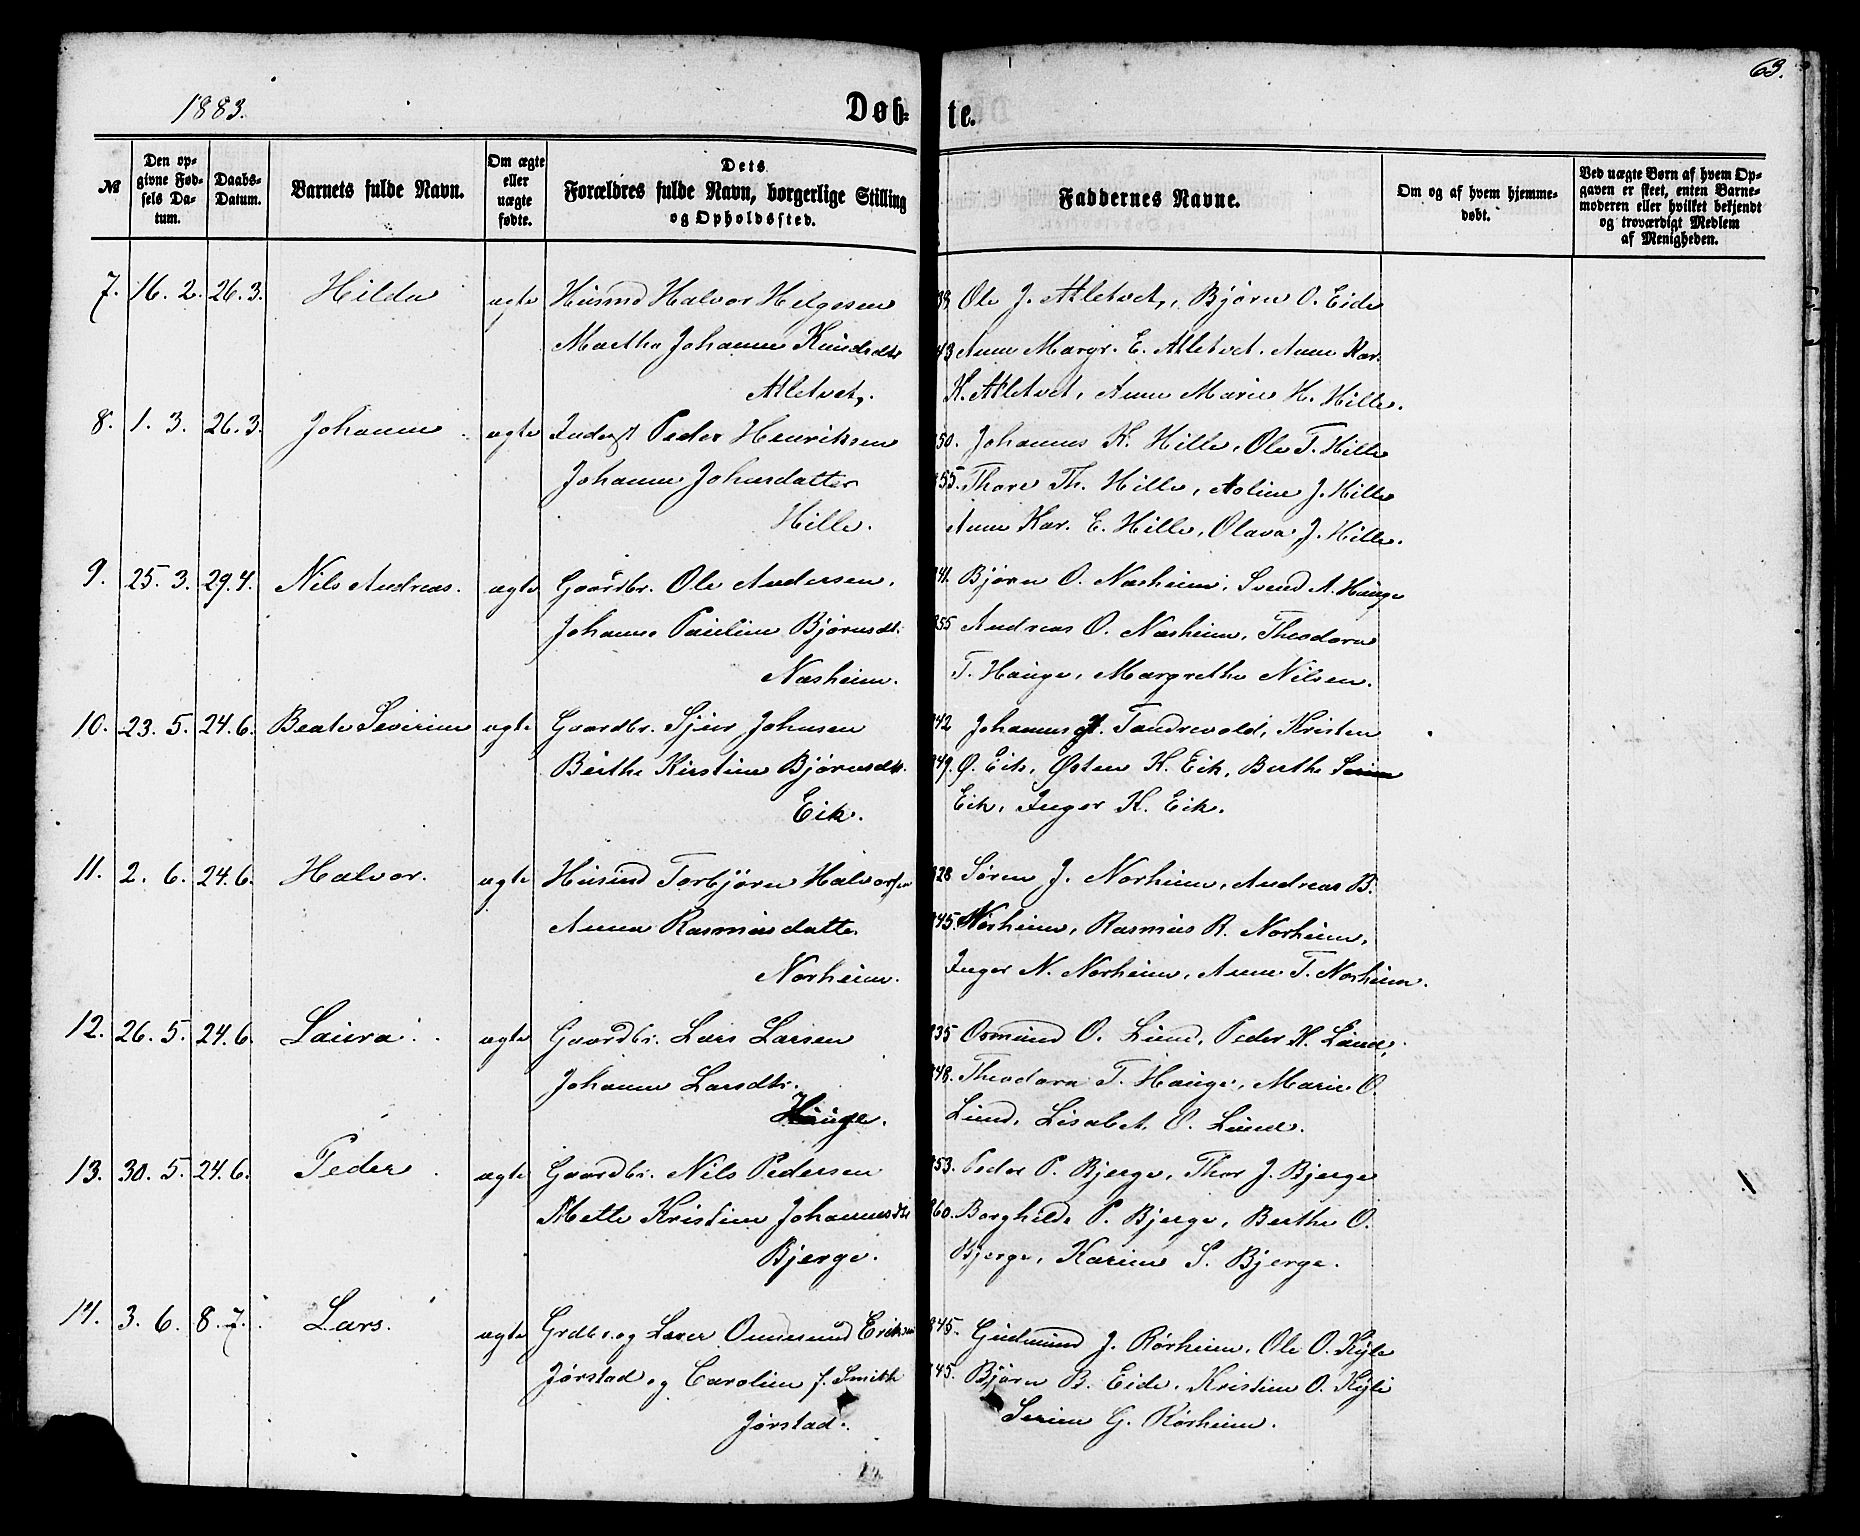 63.
1883.
Døb- te.
№
Den opgivne Fødsels Datum.
Daabs-Datum.
Barnets fulde Navn.
Om ægte eller uægte fødte.
Dets Forældres fulde Navn, borgerlige Stilling og Opholdssted.
Faddernes Navne.
Om og af hvem hjemmedøbt.
Ved uægte Børn af hvem Opgaven er skeet, enten Barnemoderen eller hvilket bekjendt og troværdigt Medlem af Menigheden.
7. 16. 2. 26. 3. Hilda ægte Husmd Halvor Helgesen Ole J. Atletvet, Bjørn O. Eide
Martha Johanne Knudsdtr 43 Anne Margr. E. Atletvet. Anne Kar.
Atletvet. K. Atletvet, Anne Marie H. Hille.
8. 1. 3. 26. 3. Johanne ægte Inderst Peder Henriksen 50. Johannes K. Hille, Ole T. Hille
Johanne Johnsdatter 55. Thore Th. Hille, Aoline J. Hille
Hille. Anne Kar. E. Hille, Olava J. Hille.
9. 25. 3. 29. 4. Nils Andreas. ægte Gaardbr. Ole Andersen. 41. Bjørn O. Næsheim, Svend A. Hauge
Johanne Pauline Bjørnsdt. 55 Andreas O. Næsheim, Theodora
Næsheim. T. Hauge, Margrethe Nilsen.
10. 23. 5. 24. 6. Beate Severine ægte Gaardbr. Sjur Johnsen 42 Johannes Tandrevold, Kristen
Berthe Kirstine Bjørnsdtr. 49. O. Eik, Østen K. Eik, Berthe Serine
Eik. Eik, Inger K. Eik.
11. 2. 6. 24. 6. Halvor. ægte Husmd Torbjørn Halvorsen 28 Søren J. Norheim, Andreas B.
Anna Rasmusdatter 45. Norheim, Rasmus R. Norheim,
Norheim. Inger N. Norheim, Anne T. Norheim.
12. 26. 5. 24. 6. Laura ægte Gaardbr. Lars Larsen 35 Osmund O. Lund, Peder H. Lund,
Johanne Larsdtr. 48. Theodora T. Hauge, Marie O.
Hauge. Lund, Lisabet O. Lund.
13. 30. 5. 24. 6. Peder ægte Gaardbr. Nils Pedersen 53. Peder P. Bjerge, Thor J. Bjerge
Mette Kristine Johannesdtr 60. Borghilde P. Bjerge, Berthe O.
Bjerge. Bjerge, Karine S. Bjerge.
14. 3. 6. 8. 7. Lars. ægte Grdbr. og Lærer Ommund Eriksen 45. Gudmund J. Rørheim, Ole O. Kyle
Jørstad og Caroline f. Smith 45. Bjørn B. Eide, Kristine O. Kyle
Jørstad. Serine G. Rørheim.